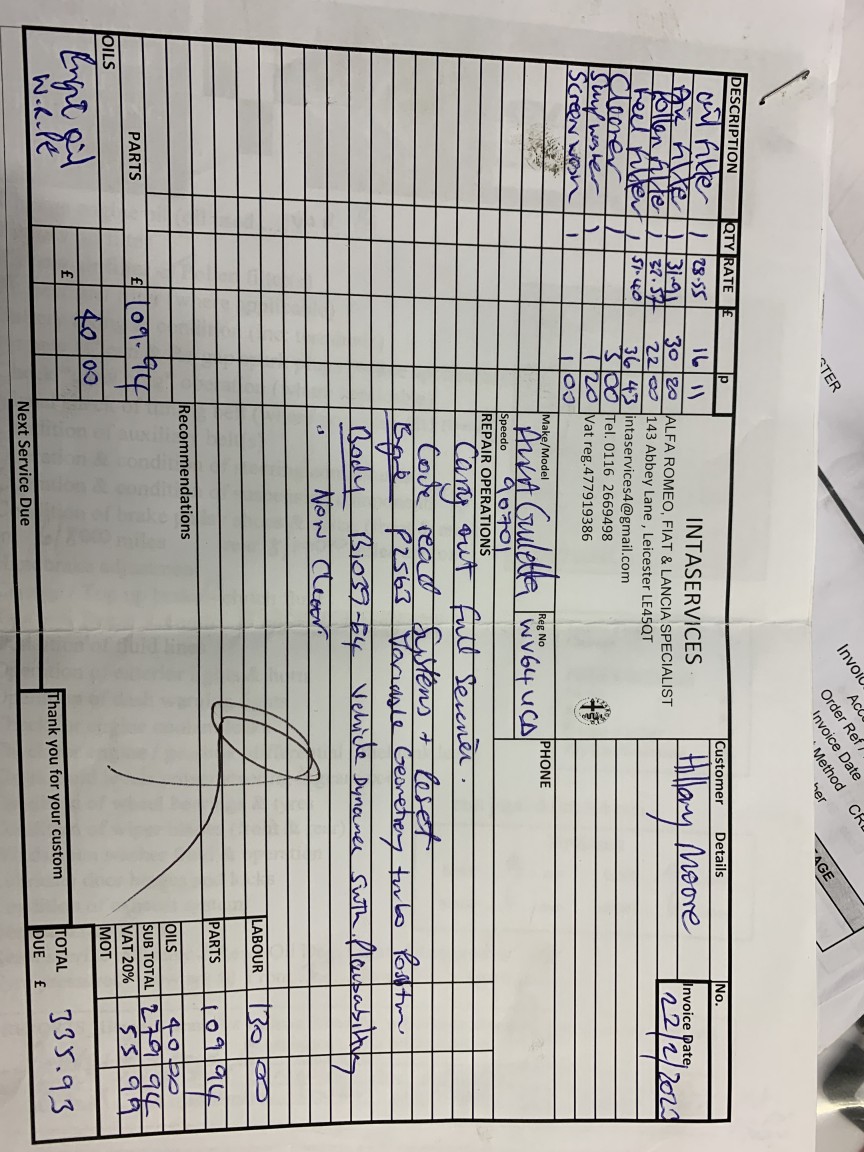 INTASERVICES
ALFA ROMEO, FIAT & LANCIA SPECIALIST
143 Abbey Lane , Leicester LE45QT
intaservices4@gmail.com
Tel. 0116 2669498
Vat reg.477919386
Customer Details
No.
Hillary Moore
Invoice Date
22/2/202
Make/Model
Giulietta
Reg No
WV64
PHONE
Speedo
90701
DESCRIPTION QTY RATE £ P
oil filter 1 28.55 16 11
Air filter 1 31.91 30 20
Pollen filter 1 22 00
Fuel filter 1 51.40 36 43
Cleaner 1 5 00
Sump washer 1 1 20
Screenwash 1 1 00
PARTS £ 109.94
OILS
Engine oil 40 00
£
REPAIR OPERATIONS
Carry out full Service.
Code read Systems + Reset
P2563 Variable Geometry turbo Position
Body Vehicle Dynamic
Now Clear.
Recommendations
LABOUR 130 00
PARTS 109 94
OILS 40 00
SUB TOTAL 279 94
VAT 20% 55 99
MOT
TOTAL DUE £ 335.93
Next Service Due
Thank you for your custom
STER
Order Ref
Invoice Date
Method
AGE